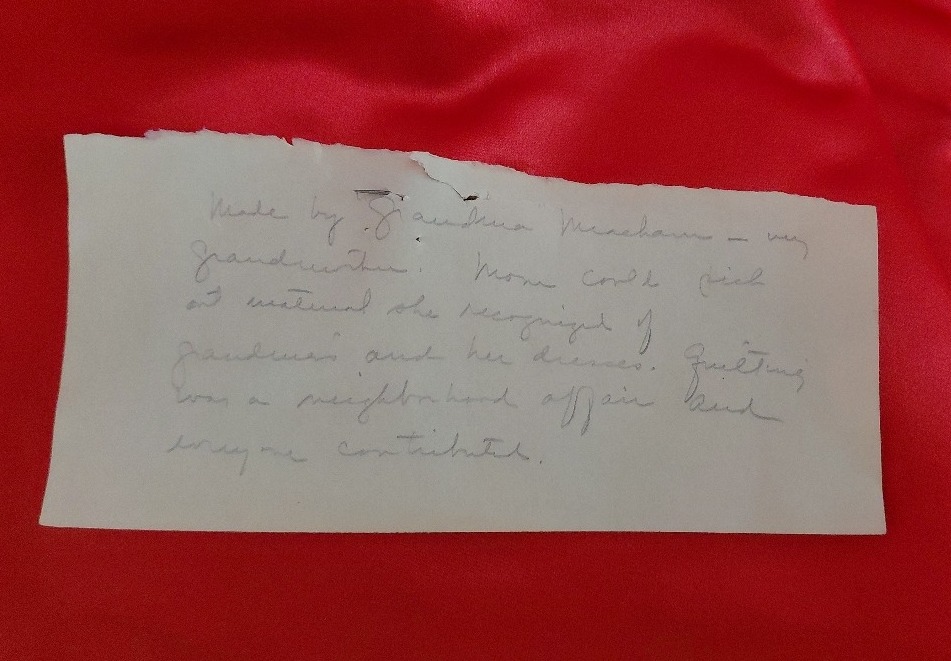 Made by Grandma Meacham – my
grandmother. Mom could pick
out material she recognized of
grandma's and her dresses. Quilting
was a neighborhood affair and
everyone contributed.